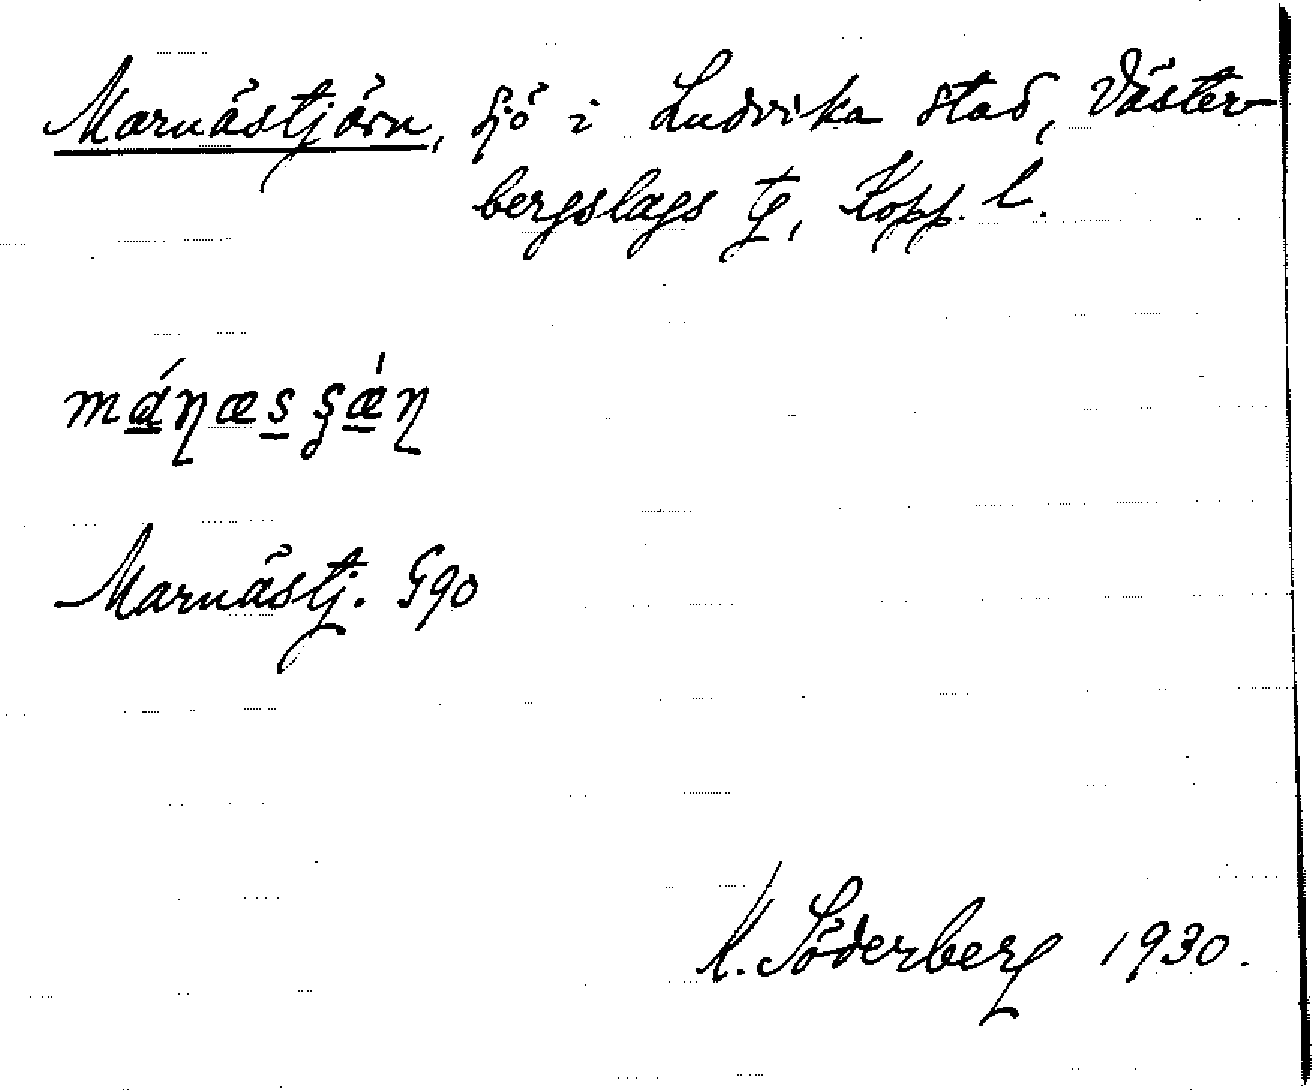 Marnästjärn, sjö i Ludvika stad, Väster-
bergslags tg, Kopp. l.
mánæs sǽn
Marnästj. G90
K. Söderberg 1930.